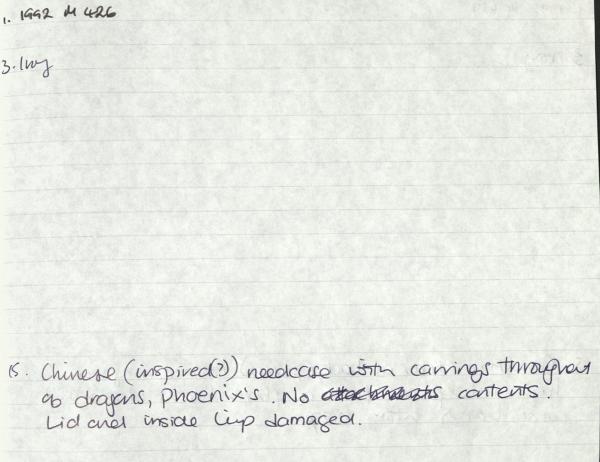 1. 1992 M 426
3. Ivy
15. Chinese (inspired(?)) needcase with carvings throughout
ob dragons, phoenix's. No contents.
Lid and inside lip damaged.